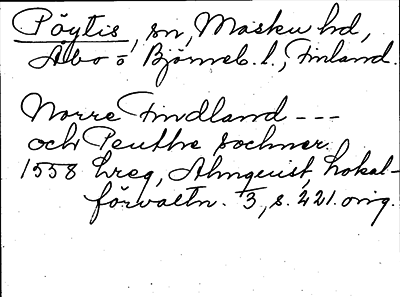 Pöytis, sn, Masku hd,
Åbo o Björneb. l., Finland.
Norre Findland ---
och Peuthe sochner.
1558 hreg, Almquist, Lokal-
förvaltn. 3, s. 421. orig.